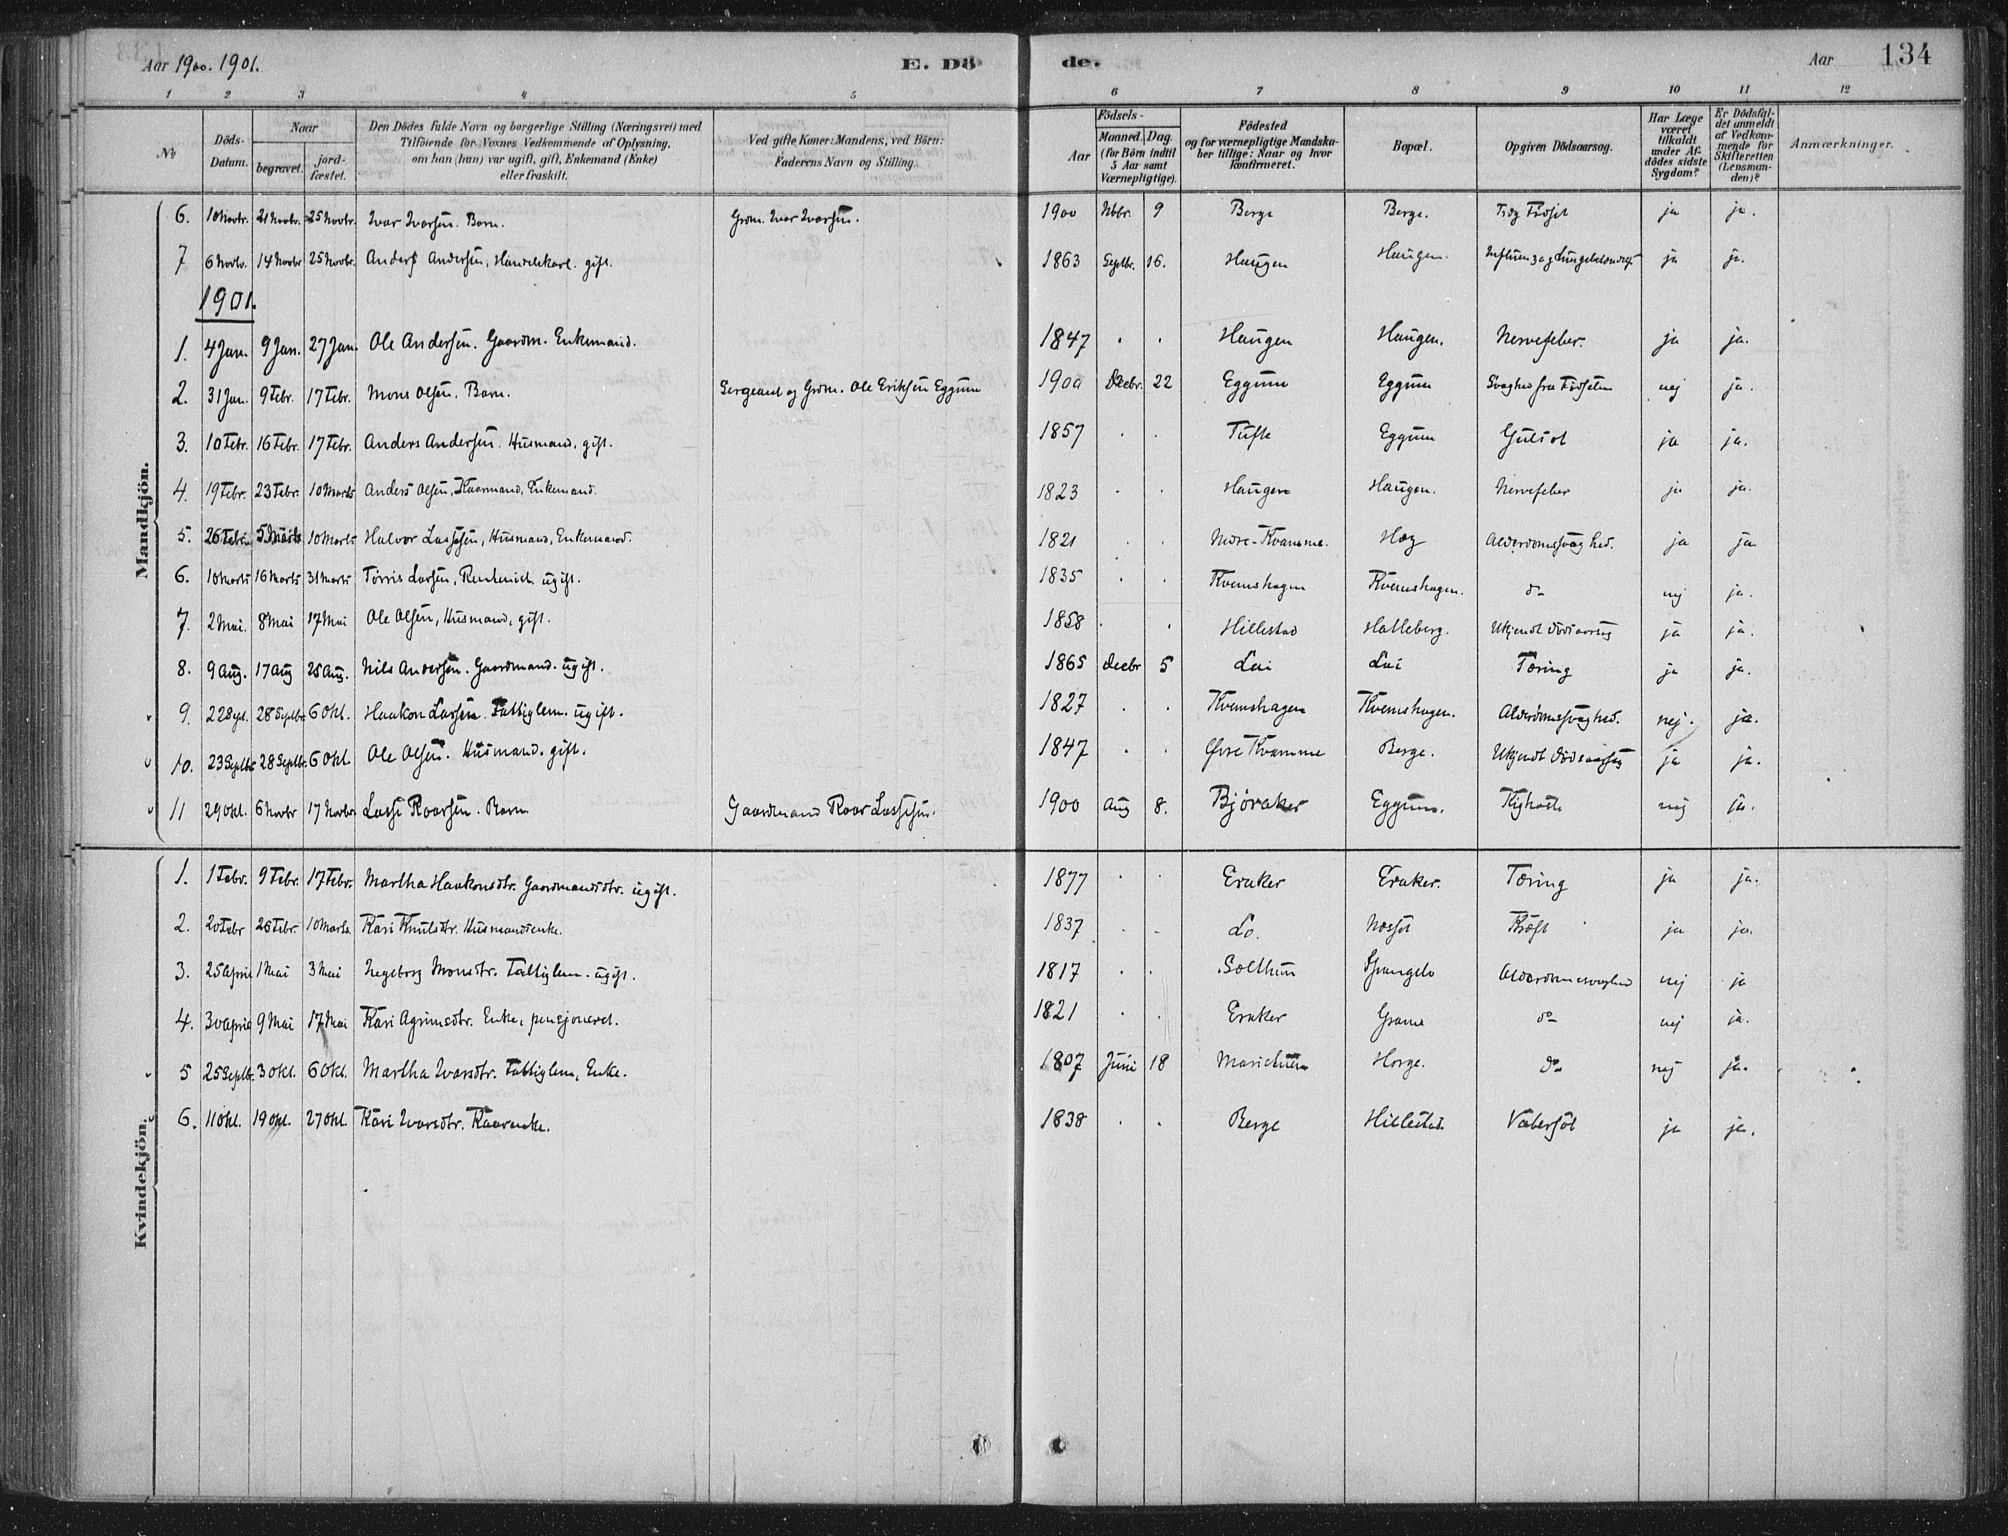 Aar 1900. 1901. E. Dö
de. Aar 134
1 2 3 4 5 6 7 8 9 10 11 12
№ Döds-Datum. Naar begravet. jord-fæstet. Den Dödes fulde Navn og borgerlige Stilling (Næringsvei) med Tilföiende for Voxnes Vedkommende af Oplysning, om han (hun) var ugift, gift, Enkemand (Enke) eller fraskilt. Ved gifte Koner: Mandens, ved Börn: Faderens Navn og Stilling. Födsels- Aar Maaned. Dag. (for Börn indtil 5 Aar samt Værnepligtige). Födested og for værnepligtige Mandskaber tillige: Naar og hvor konfirmeret. Bopæl. Opgiven Dödsaarsag. Har Læge været tilkaldt under Afdödes sidste Sygdom? Er Dödsfaldet anmeldt af Vedkommende for Skifteretten (Lensmanden)? Anmærkninger.
Mandkjön.
6. 10 Novbr. 21 Novbr. 25 Novbr. Ivar Ivarsen. Barn. Grdm. Ivar Ivarsen. 1900 Nbbr. 9 Berge Berge. ja ja.
7 6 Novbr. 14 Novbr 25 Novbr. Anders Andersen, Handelskarl. gift. 1863 Septbr. 16. Haugen Haugen. ja ja.
1901.
1. 4 Jan. 9 Jan. 27 Jan. Ole Andersen. Gaardm. Enkemand. 1847 . . Haugen Haugen. Nervefeber. ja ja.
2. 31 Jan. 9 Febr. 17 Febr. Mons Olsen. Barn. Sergeant og Grdm. Ole Eriksen Eggum 1900 Decbr. 22 Eggum Eggum Svaghed fra Fødselen nej ja.
3. 10 Febr. 16 Febr. 17 Febr. Anders Andersen. Husmand. gift. 1857 . . Tufte Eggum Gulsot ja ja.
4. 19 Febr. 23 Febr. 10 Marts Anders Olsen, Kaarmand, Enkemand. 1823 . . Haugen Haugen. Nervefeber ja ja.
5. 26 Febr. 5 Marts 10 Marts Halvor Lassesen, Husmand, Enkemand. 1821 . . Nedre-Kvamme. Hæg Alderdomssvaghed. ja ja.
6. 10 Marts 16 Marts 31 Marts Tørris Larsen, ugift. 1835 . . Kvemshagen Kvemshagen. do nej ja.
7. 2 Mai. 8 Mai 17 Mai Ole Olsen, Husmand, gift. 1858 . . Hillestad Halleberg. Ukjendt Dödsaarsag ja ja.
8. 9 Aug. 17 Aug 25 Aug. Nils Andersen. Gaardmand. ugift. 1865 Decbr 5 Lai Lai Tæring ja ja.
9. 22 Sept. 28 Septbr. 6 Okt. Haakon Larsen. Fattiglem. ugift. 1827 . . Kvemshagen Kvemshagen. Alderdomssvaghed. nej. ja.
10. 23 Septbr 28 Septbr. 6 Okt. Ole Olsen. Husmand. gift. 1847 . . Øvre Kvamme Berge. Ukjendt Dödsaarsag ja ja.
11 29 Okt. 6 Novbr 17 Novbr. Lasse Roarsen. Barn Gaardmand Roar Lassesen. 1900 Aug 8. Björaker Eggum. Kighoste nej ja.
Kvindekjön.
1. 1 Febr. 9 Febr. 17 Febr. Martha Haakonsdtr. Gaardmandsdtr. ugift. 1877 . . Eraker Eraker. Tæring ja ja.
2. 20 Febr 26 Febr. 10 Marts. Kari Knutsdtr. Husmandsenke. 1837 . . Lo. Næsset Kræft ja ja.
3. 25 April 1 Mai 3 Mai Ingeborg Monsdtr. Fattiglem. ugift. 1817 . . Solthun Sprangelo Alderdomssvaghed nej ja
4. 30 April 9 Mai 17 Mai Kari Agrimsdtr. Enke, pensjoneret. 1821 . . Eraker Grams do nej ja.
5 25 Septbr. 3 Okt. 6 Okt. Martha Ivarsdtr. Fattiglem, Enke. 1807 Juni 18 Maristuen Horge. do nej ja.
6. 11 Okt. 19 Okt. 27 Okt. Kari Ivarsdtr. Kaarenke. 1838 . . Berge Hillestad. Vatersot ja ja.